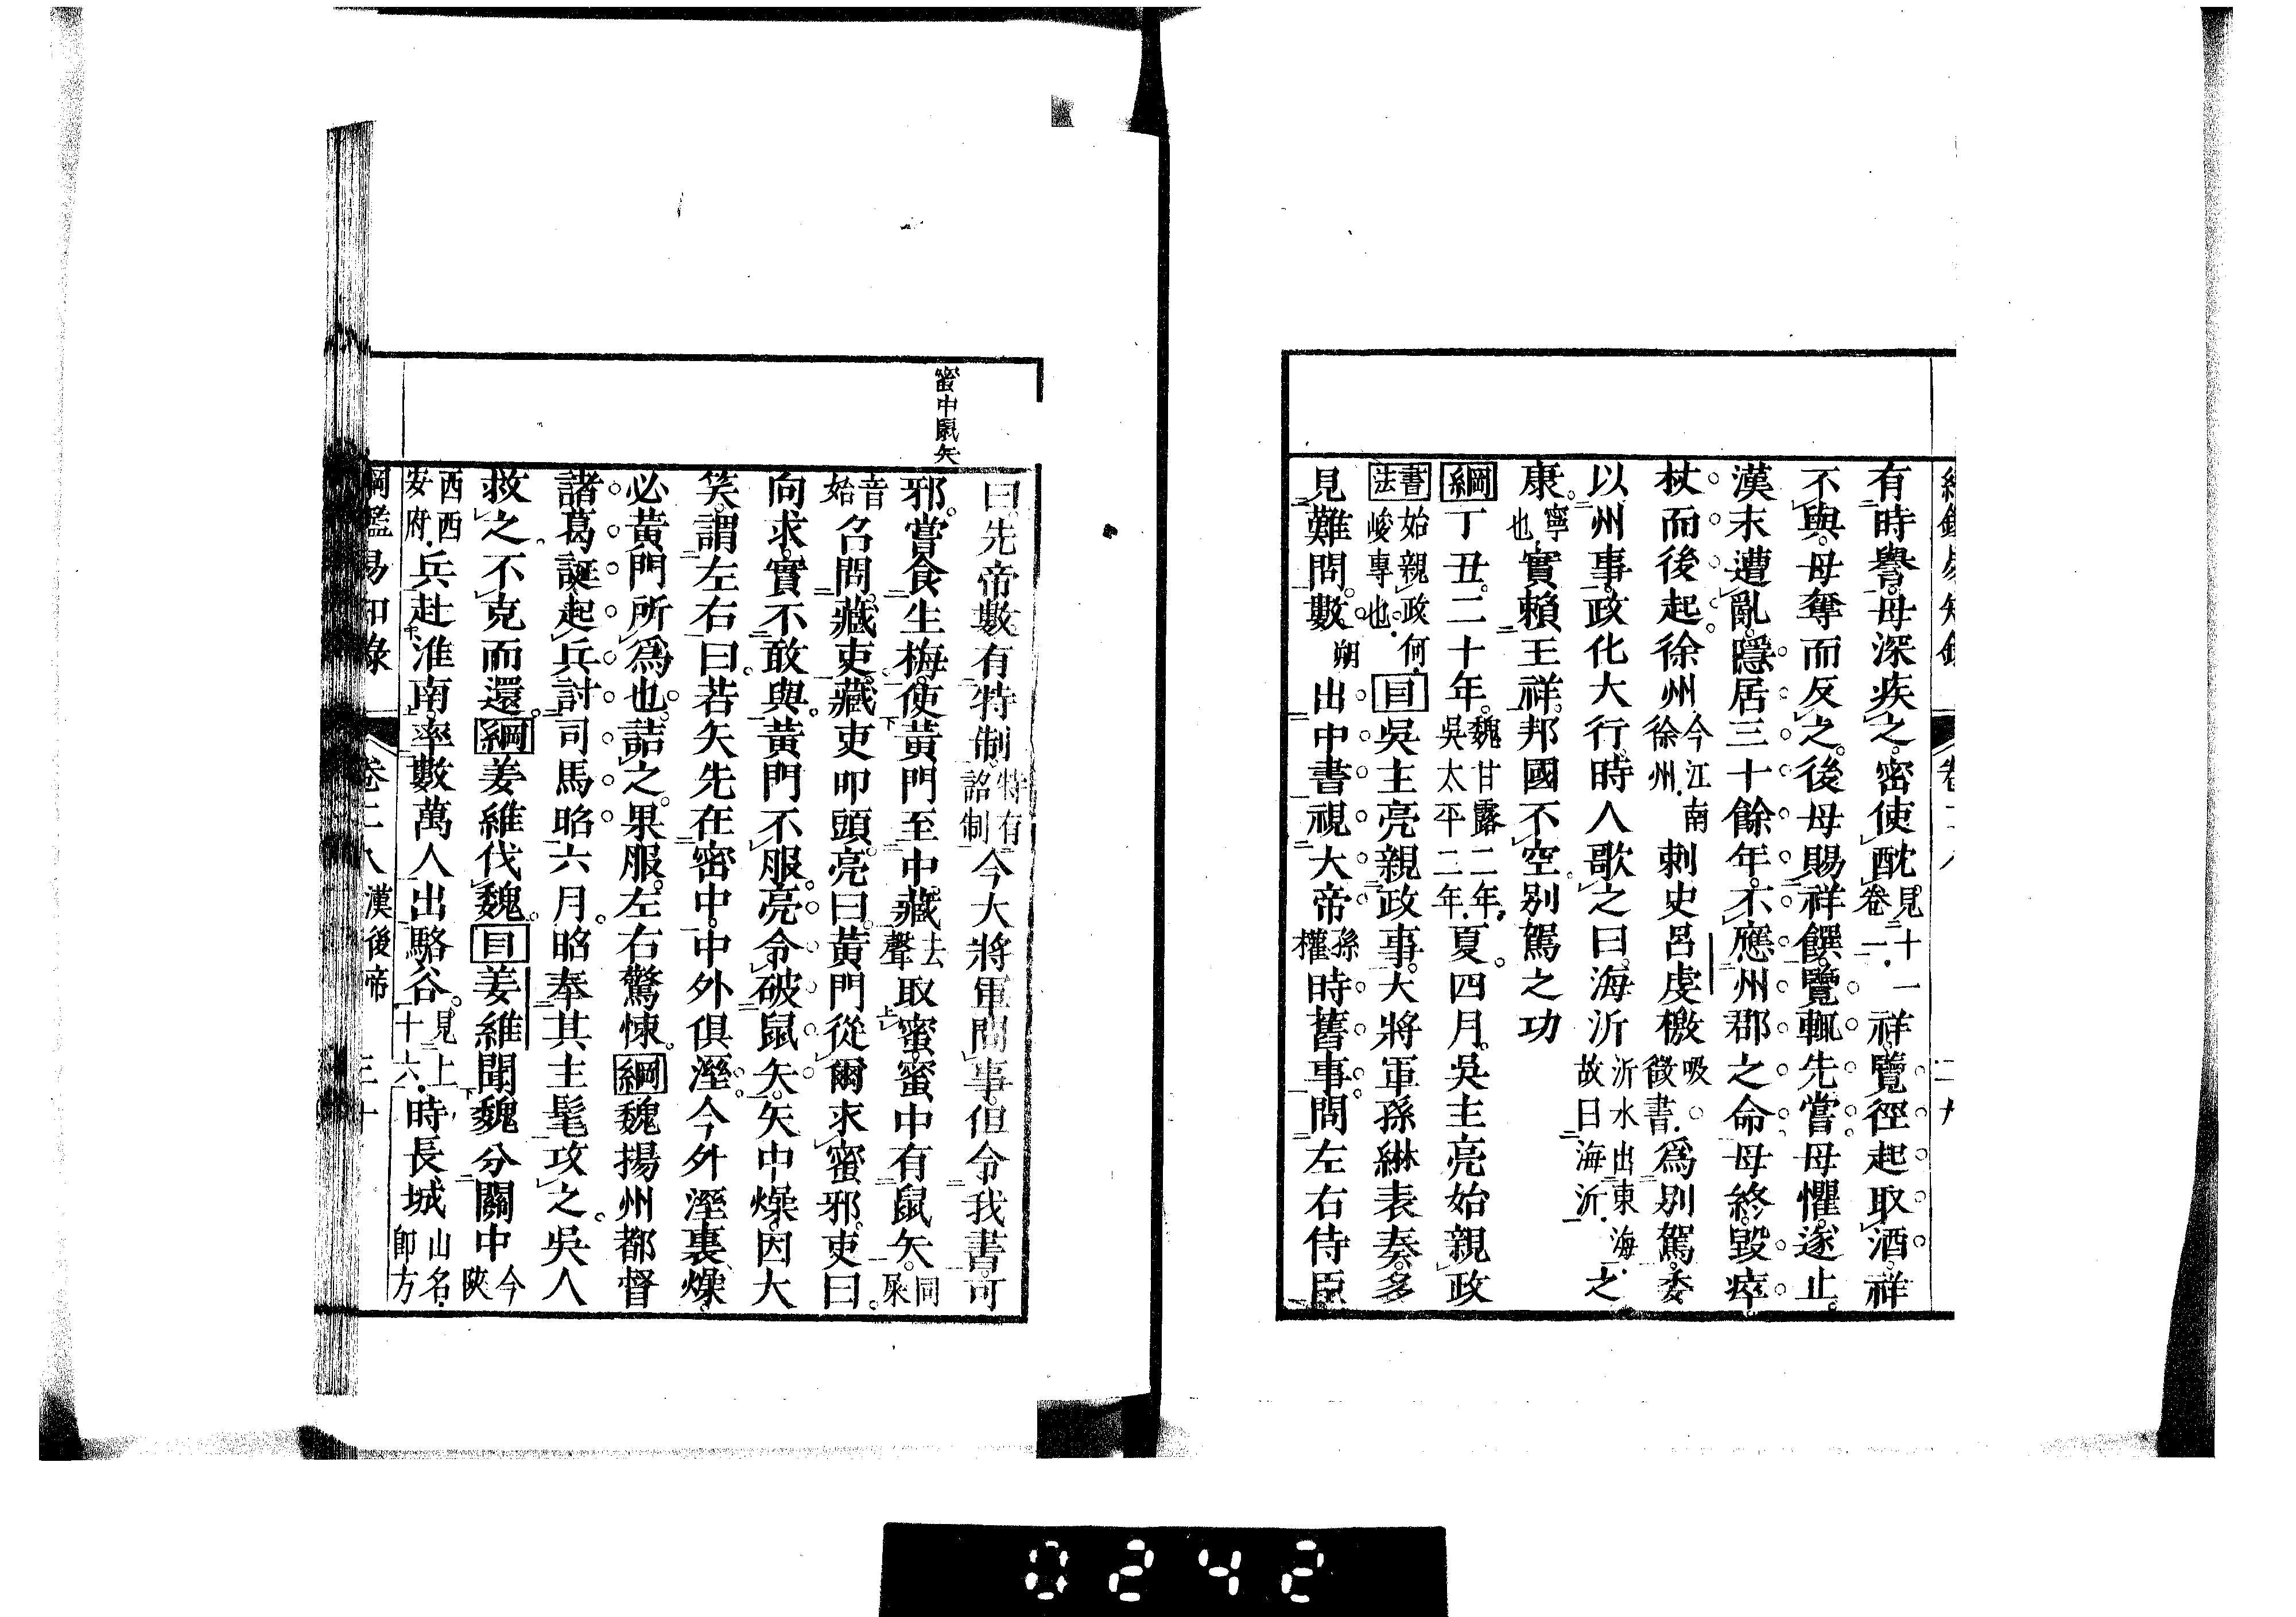 有時譽母深疾之密使酖見十一卷二祥覽徑起取酒祥
不與母奪而反之後母賜祥饌覽輒先嘗母懼遂止
漢末遭亂隱居三十餘年不應州郡之命母終毀瘁
杖而後起徐州今江南徐州刺史呂虔檄吸徵書爲別駕委
以州事政化大行時人歌之曰海沂沂水出東海故曰海沂之
康寧也實賴王祥邦國不空別駕之功
綱丁丑二十年魏甘露二年吳太平二年夏四月吳主亮始親政
書法始親政何峻專也目吳主亮親政事大將軍孫綝表奏多
見難問數朔出中書視大帝孫權時舊事問左右侍臣
蜜中鼠矢
曰先帝數有特制特有詔制今大將軍問事但令我書可
邪嘗食生梅使黃門至中藏去聲取蜜蜜中有鼠矢同屎
音始召問藏吏藏吏叩頭亮曰黃門從爾求蜜邪吏曰
向求實不敢與黃門不服亮令破鼠矢矢中燥因大
笑謂左右曰若矢先在密中中外俱溼今外溼裏燥
必黃門所爲也詰之果服左右驚悚綱魏揚州都督
諸葛誕起兵討司馬昭六月昭奉其主髦攻之吳人
救之不克而還綱姜維伐魏目姜維聞魏分關中今陝
西西安府兵赴淮南率數萬人出駱谷見上十六時長城山名卽方
綱鑑易知錄 卷二八 漢後帝 三十